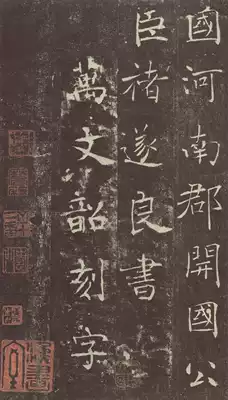 國河南郡開國公
臣褚遂良書
萬文韶刻字